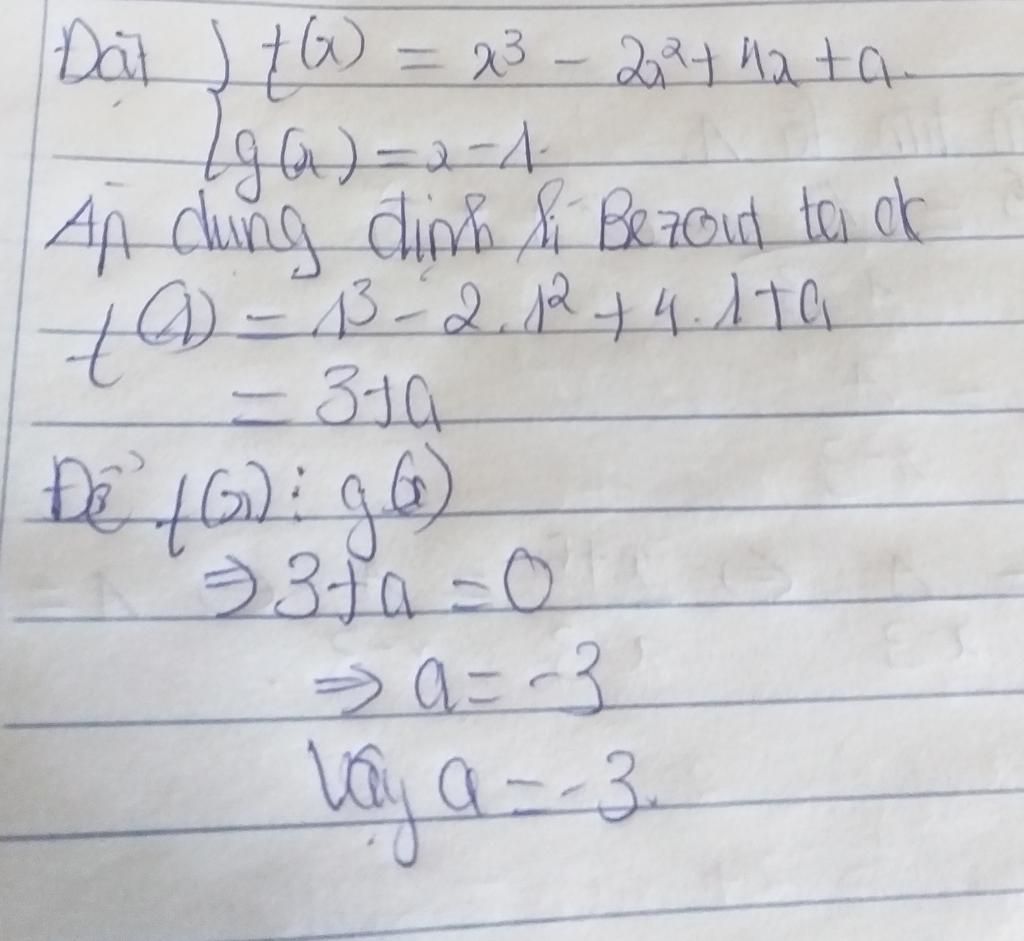 Đặt { f(x) = x³ - 2x² + 4x + a.
g(x) = x - 1.
Áp dụng định lí Bezout ta đc
f(1) = 1³ - 2.1² + 4.1 + a
= 3 + a
Để f(x) ⋮ g(x)
⇒ 3 + a = 0
⇒ a = -3
Vậy a = -3.